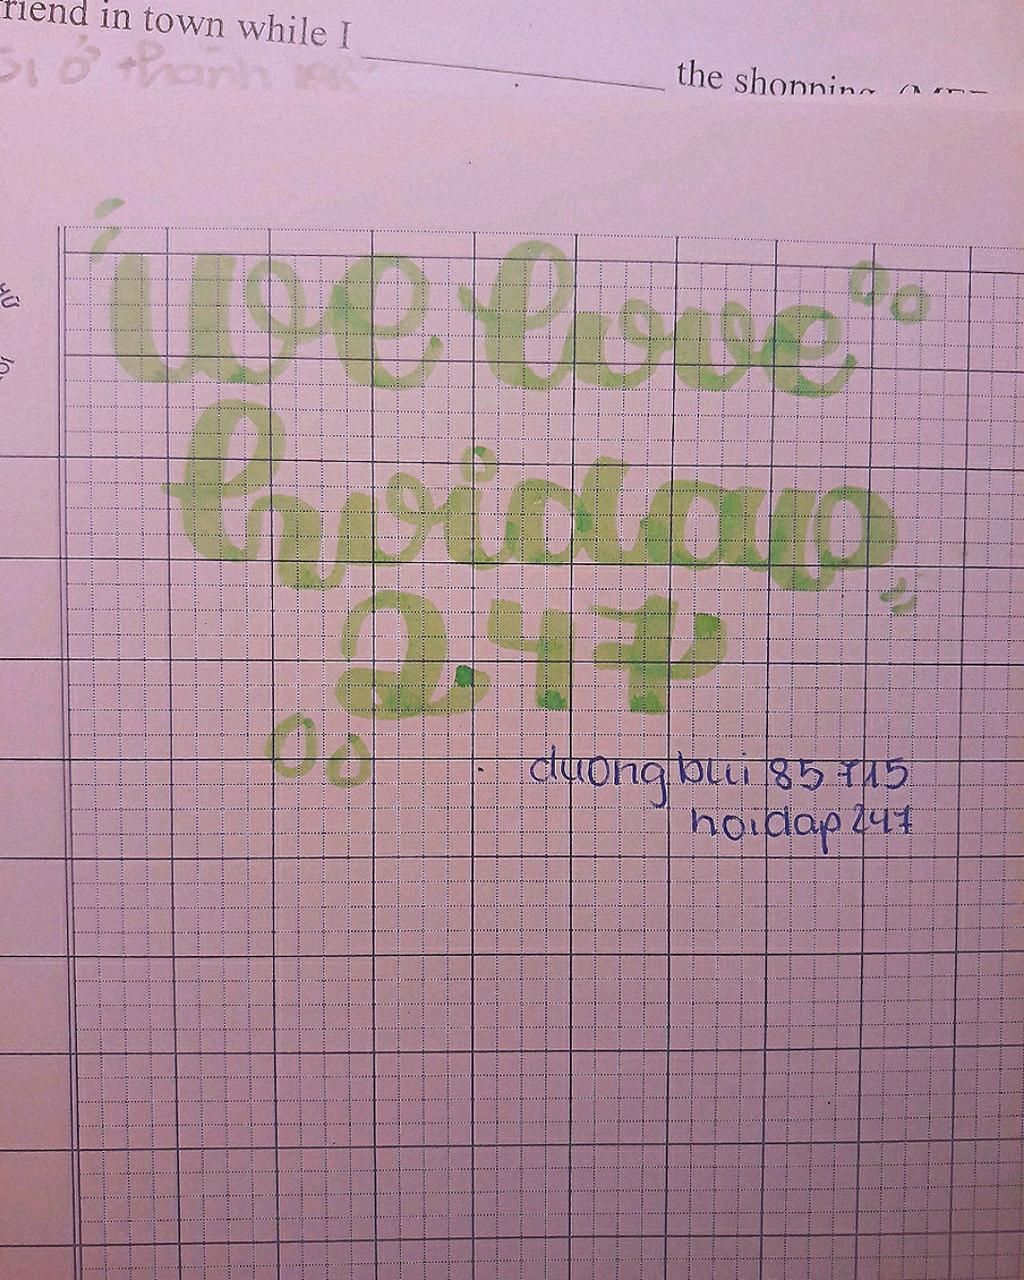 friend in town while I ____________ the shopping.
ở thành
We love
hoidap
247
duongbui 85715
hoidap247